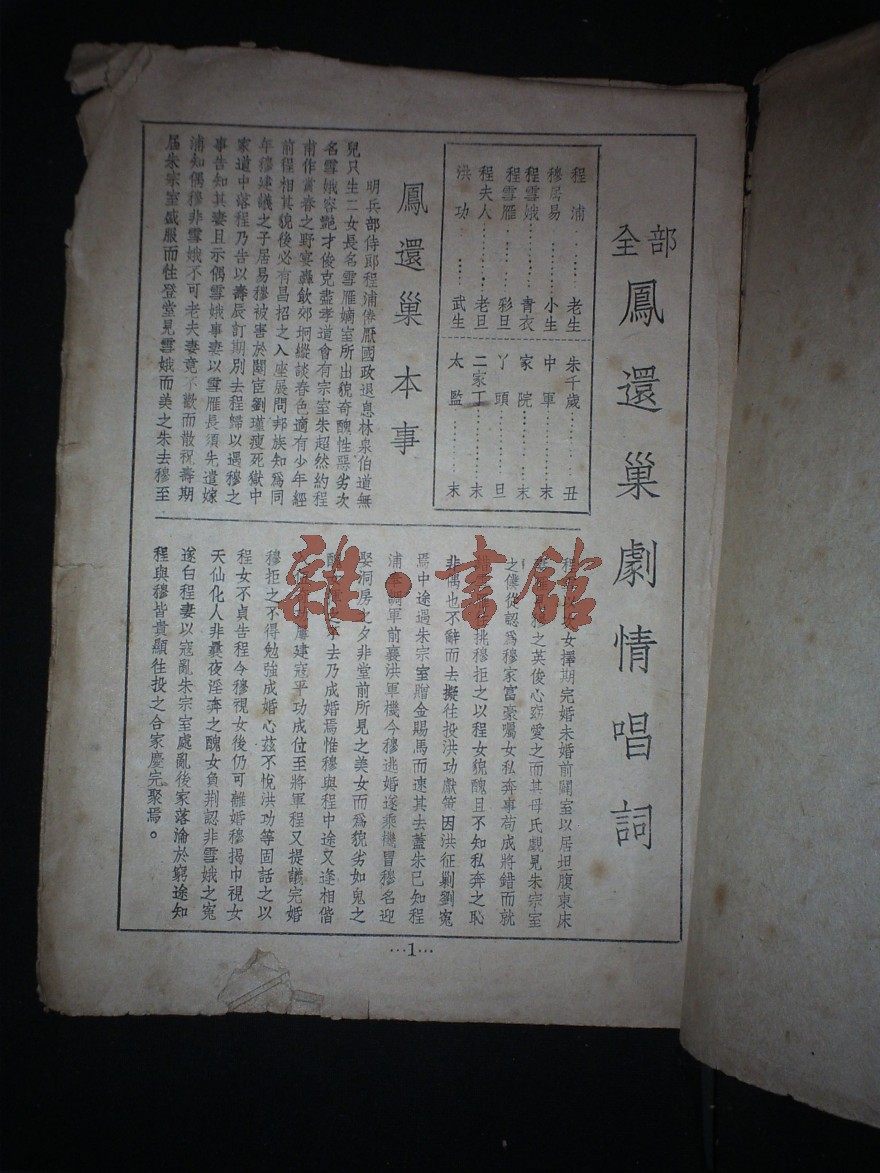 全部
鳳還巢劇情唱詞
程浦……老生
穆居易……小生
程雪娥……青衣
程雪雁……彩旦
程夫人……老旦
洪功……武生
朱千歲……丑
中軍……末
家院……末
丫頭……旦
二家丁……末
太監……末
鳳還巢本事
明兵部侍郎程浦倦厭國政退息林泉伯道無
兒只生二女長名雪雁嫡室所出貌奇醜性惡劣次
名雪娥容艷才俊克盡孝道會有宗室朱超然約程
南作賞春之野宴轟飲郊坰縱談春色適有少年經
前程相其貌後必有昌招之入座展問邦族知爲同
年穆建議之子居易穆被害於閹宦劉瑾瘦死獄中
家道中落程乃告以壽辰訂期別去程歸以遇穆之
事告知其妻且示偶雪娥事妻以雪雁長須先遣嫁
浦知偶穆非雪娥不可老夫妻竟不歡而散祝壽期
屆朱宗室盛服而往登堂見雪娥而美之朱去穆至
程 女擇期完婚未婚前闢室以居坦腹東床
之英俊心竊愛之而其母氏覷見朱宗室
之僕從認爲穆家富豪囑女私奔事苟成將錯而就
挑穆拒之以程女貌醜且不知私奔之恥
非偶也不辭而去擬往投洪功獻策因洪征剿劉寃
焉中途過朱宗室贈金賜馬而速其去蓋朱已知程
浦奉調軍前襄洪軍機今穆逃婚遂乘機冒穆名迎
娶洞房之夕非堂前所見之美女而爲貌劣如鬼之
去乃成婚焉惟穆與程中途又逢相偕
屢建寇平功成位至將軍程又提議完婚
穆拒之不得勉強成婚心茲不悅洪功等固話之以
程女不貞告程今穆視女後仍可離婚穆揭巾視女
天仙化人非曩夜淫奔之醜女負荆認非雪娥之寃
遂白程妻以寇亂朱宗室處亂後家落淪於窮途知
程與穆皆貴顯往投之合家慶完聚焉。
…1…
雜·書館